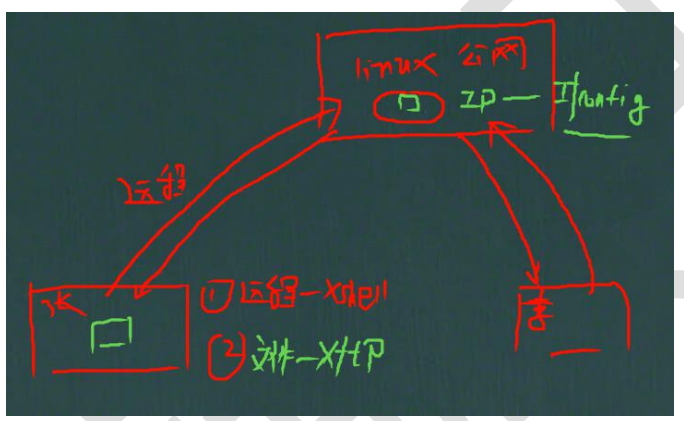 linux 公网
IP — Ifconfig
远程
张
① 远程-Xshell
② 文件-XftP
李